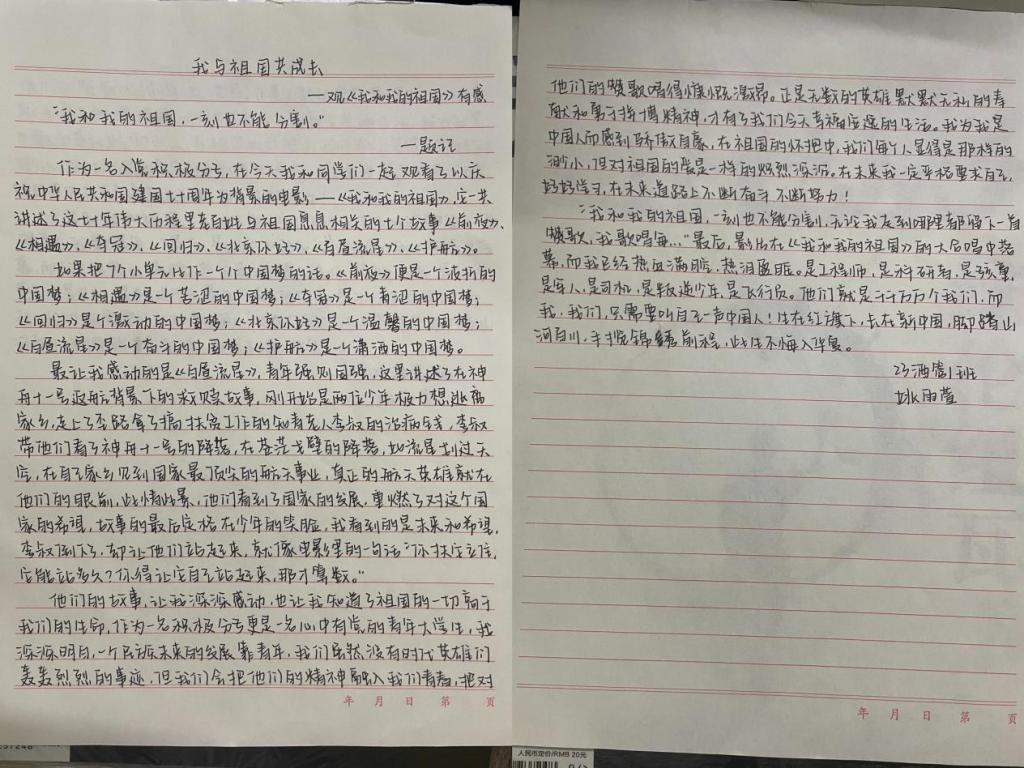 我与祖国共成长
——观《我和我的祖国》有感
"我和我的祖国,一刻也不能分割。"
——题记
作为一名入党积极分子,在今天我和同学们一起观看了以庆
祝中华人民共和国建国七十周年为背景的电影——《我和我的祖国》,它一共
讲述了这七十年伟大历程里老百姓与祖国息息相关的七个故事《前夜》、
《相遇》、《夺冠》、《回归》、《北京你好》、《白昼流星》、《护航》。
如果把7个小单元比作一个个中国梦的话。《前夜》便是一个波折的
中国梦;《相遇》是一个苦涩的中国梦;《夺冠》是一个青涩的中国梦;
《回归》是个激动的中国梦;《北京你好》是一个温馨的中国梦;
《白昼流星》是一个奋斗的中国梦;《护航》是一个潇洒的中国梦。
最让我感动的是《白昼流星》,青年强则国强,这里讲述了在神
舟十一号返航背景下的救赎故事,刚开始是两位少年极力想逃离
家乡,走上了歪路拿了搞扶贫工作的知青老人李叔的治病钱,李叔
带他们看了神舟十一号的降落,在苍茫戈壁的降落,如流星划过天
空,在自己家乡见到国家最顶尖的航天事业,真正的航天英雄就在
他们的眼前,此情此景,他们看到了国家的发展,重燃了对这个国
家的希望,故事的最后定格在少年的笑脸,我看到的是未来和希望,
李叔倒下了,却让他们站起来,就像电影里的一句话"你扶它立信,
它能站多久?你得让它自己站起来,那才算数。"
他们的故事,让我深深感动,也让我知道了祖国的一切高于
我们的生命,作为一名积极分子更是一名心中有党的青年大学生,我
深深明白,一个民族未来的发展靠青年,我们虽然没有时代英雄们
轰轰烈烈的事迹,但我们会把他们的精神融入我们青春,把对
年 月 日 第 页
他们的赞歌唱得慷慨激昂。正是无数的英雄默默无私的奉
献和勇于拼搏精神,才有了我们今天幸福安逸的生活。我为我是
中国人而感到骄傲自豪,在祖国的怀抱中,我们每个人显得是那样的
渺小,但对祖国的爱是一样的炽烈深沉。在未来我一定严格要求自己,
好好学习,在未来道路上不断奋斗不断努力!
"我和我的祖国,一刻也不能分割,无论我走到哪里都留下一首
赞歌,我歌唱每…"最后,影片在《我和我的祖国》的大合唱中落
幕,而我已经热血满腔,热泪盈眶。是工程师,是科研者,是孩童,
是军人,是司机,是叛逆少年,是飞行员。他们就是千千万万个我们,而
我,我们,只需要叫自己一声中国人!生在红旗下,长在新中国,脚踏山
河百川,手揽锦绣前程,此生不悔入华夏。
23酒管1班
姚雨萱
年 月 日 第 页
人民币定价/RMB 20元